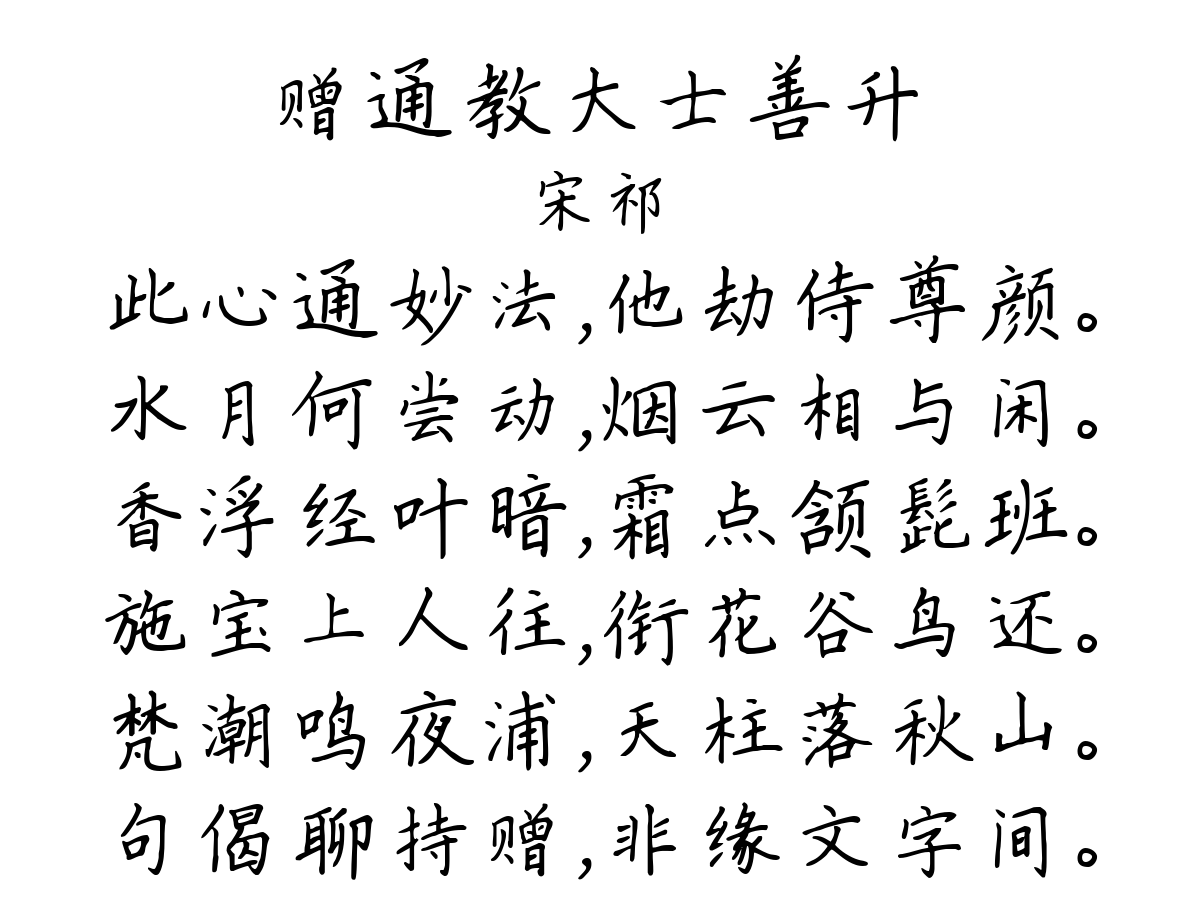 赠通教大士善升
宋祁
此心通妙法,他劫侍尊颜。
水月何尝动,烟云相与闲。
香浮经叶暗,霜点颔髭班。
施宝上人往,衔花谷鸟还。
梵潮鸣夜浦,天柱落秋山。
句偈聊持赠,非缘文字间。